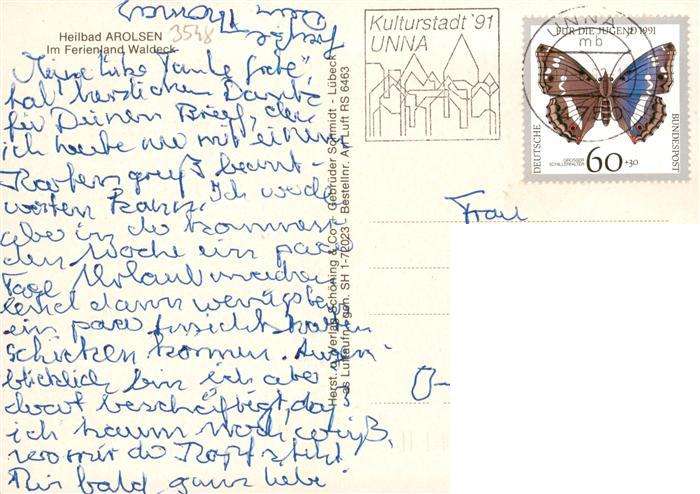 Heilbad AROLSEN
Im Ferienland Waldeck
3548
Meine liebe Tante Grete,
hab herzlichen Dank
für Deinen Brief, den
ich heute nur mit einem
Kartengruß beant-
worten kann. Ich werde
aber in der kommen-
den Woche ein paar
Tage Urlaub machen
und dann wenigstens
ein paar Ansichtskarten
schicken können. Augen-
blicklich bin ich aber
derart beschäftigt, daß
ich kaum noch weiß,
wo mir der Kopf steht.
Bis bald, ganz liebe
Grüße
Dein Thomas
Herst. u. Verlag Schöning & Co + Gebrüder Schmidt - Lübeck
Luftaufnahmen. SH 1-72023 Bestellnr. Aro Luft RS 6463
Kulturstadt '91
UNNA
UNNA
mb
FÜR DIE JUGEND 1991
DEUTSCHE
BUNDESPOST
GROSSER
SCHILLERFALTER
60+30
Frau
O-